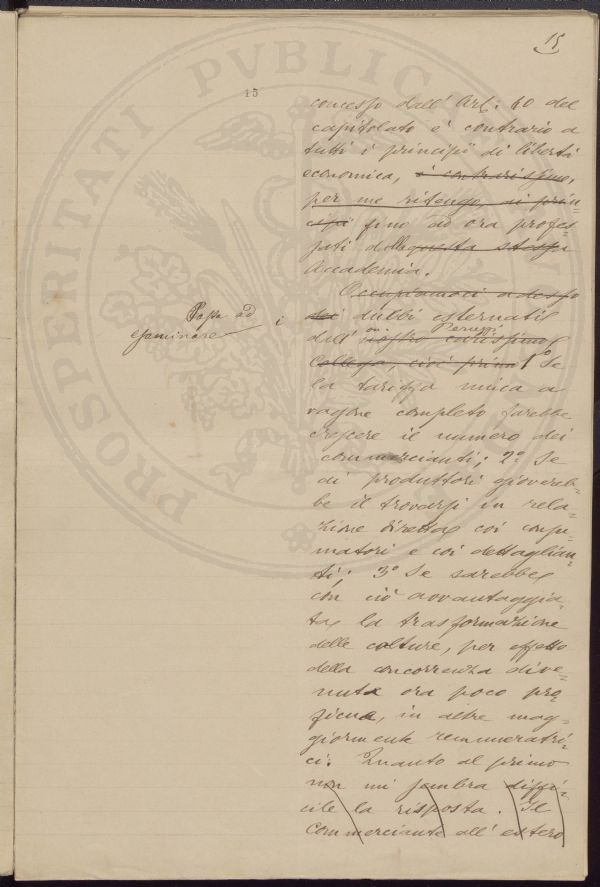 15
15
concesso dall' Art: 60 del
capitolato è contrario a
tutti i principii di libertà
economica, e contrarissimo,
per me ritengo, ai prin=
cipi fino ad ora profes=
sati dalla questa stessa
Accademia.
Occupiamoci adesso
dei dubbi esternati
dall' on Peruzzi nostro carissimo
Collega, cioè prima 1º Se
la tariffa unica a
vagone completo farebbe
crescere il numero dei
commercianti; 2º Se
ai produttori giovereb=
be il trovarsi in rela=
zione diretta coi consu=
matori e coi dettaglian=
ti; 3º Se sarebbe
con ciò avvantaggia=
ta la trasformazione
delle colture, per effetto
della concorrenza dive=
nuta ora poco pro=
ficue, in altre mag=
giormente remuneratri=
ci. Quanto al primo
non mi sembra diffi=
cile la risposta. Il
commerciante all' estero
Passa ad i
esaminare
PROSPERITATI PVBLICAE